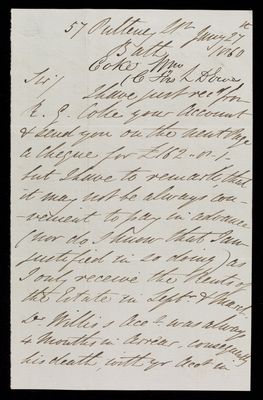 57 Pulteney St
Jany 27th
Bath 1860
Coke Wm
Sir/
I have just recd from
R. G. Coke your Account
& send you on the next Page
a cheque for £182 - 0 - 1.
but I have to remark, that
it may not be always con-
venient to pay in advance
(nor do I know that I am
justified in so doing) as
I only receive the Rents of
the Estate in Septr & March.
Dr Willis's Acct was always
4 months in arrear, consequently
his death, with yr Acct in